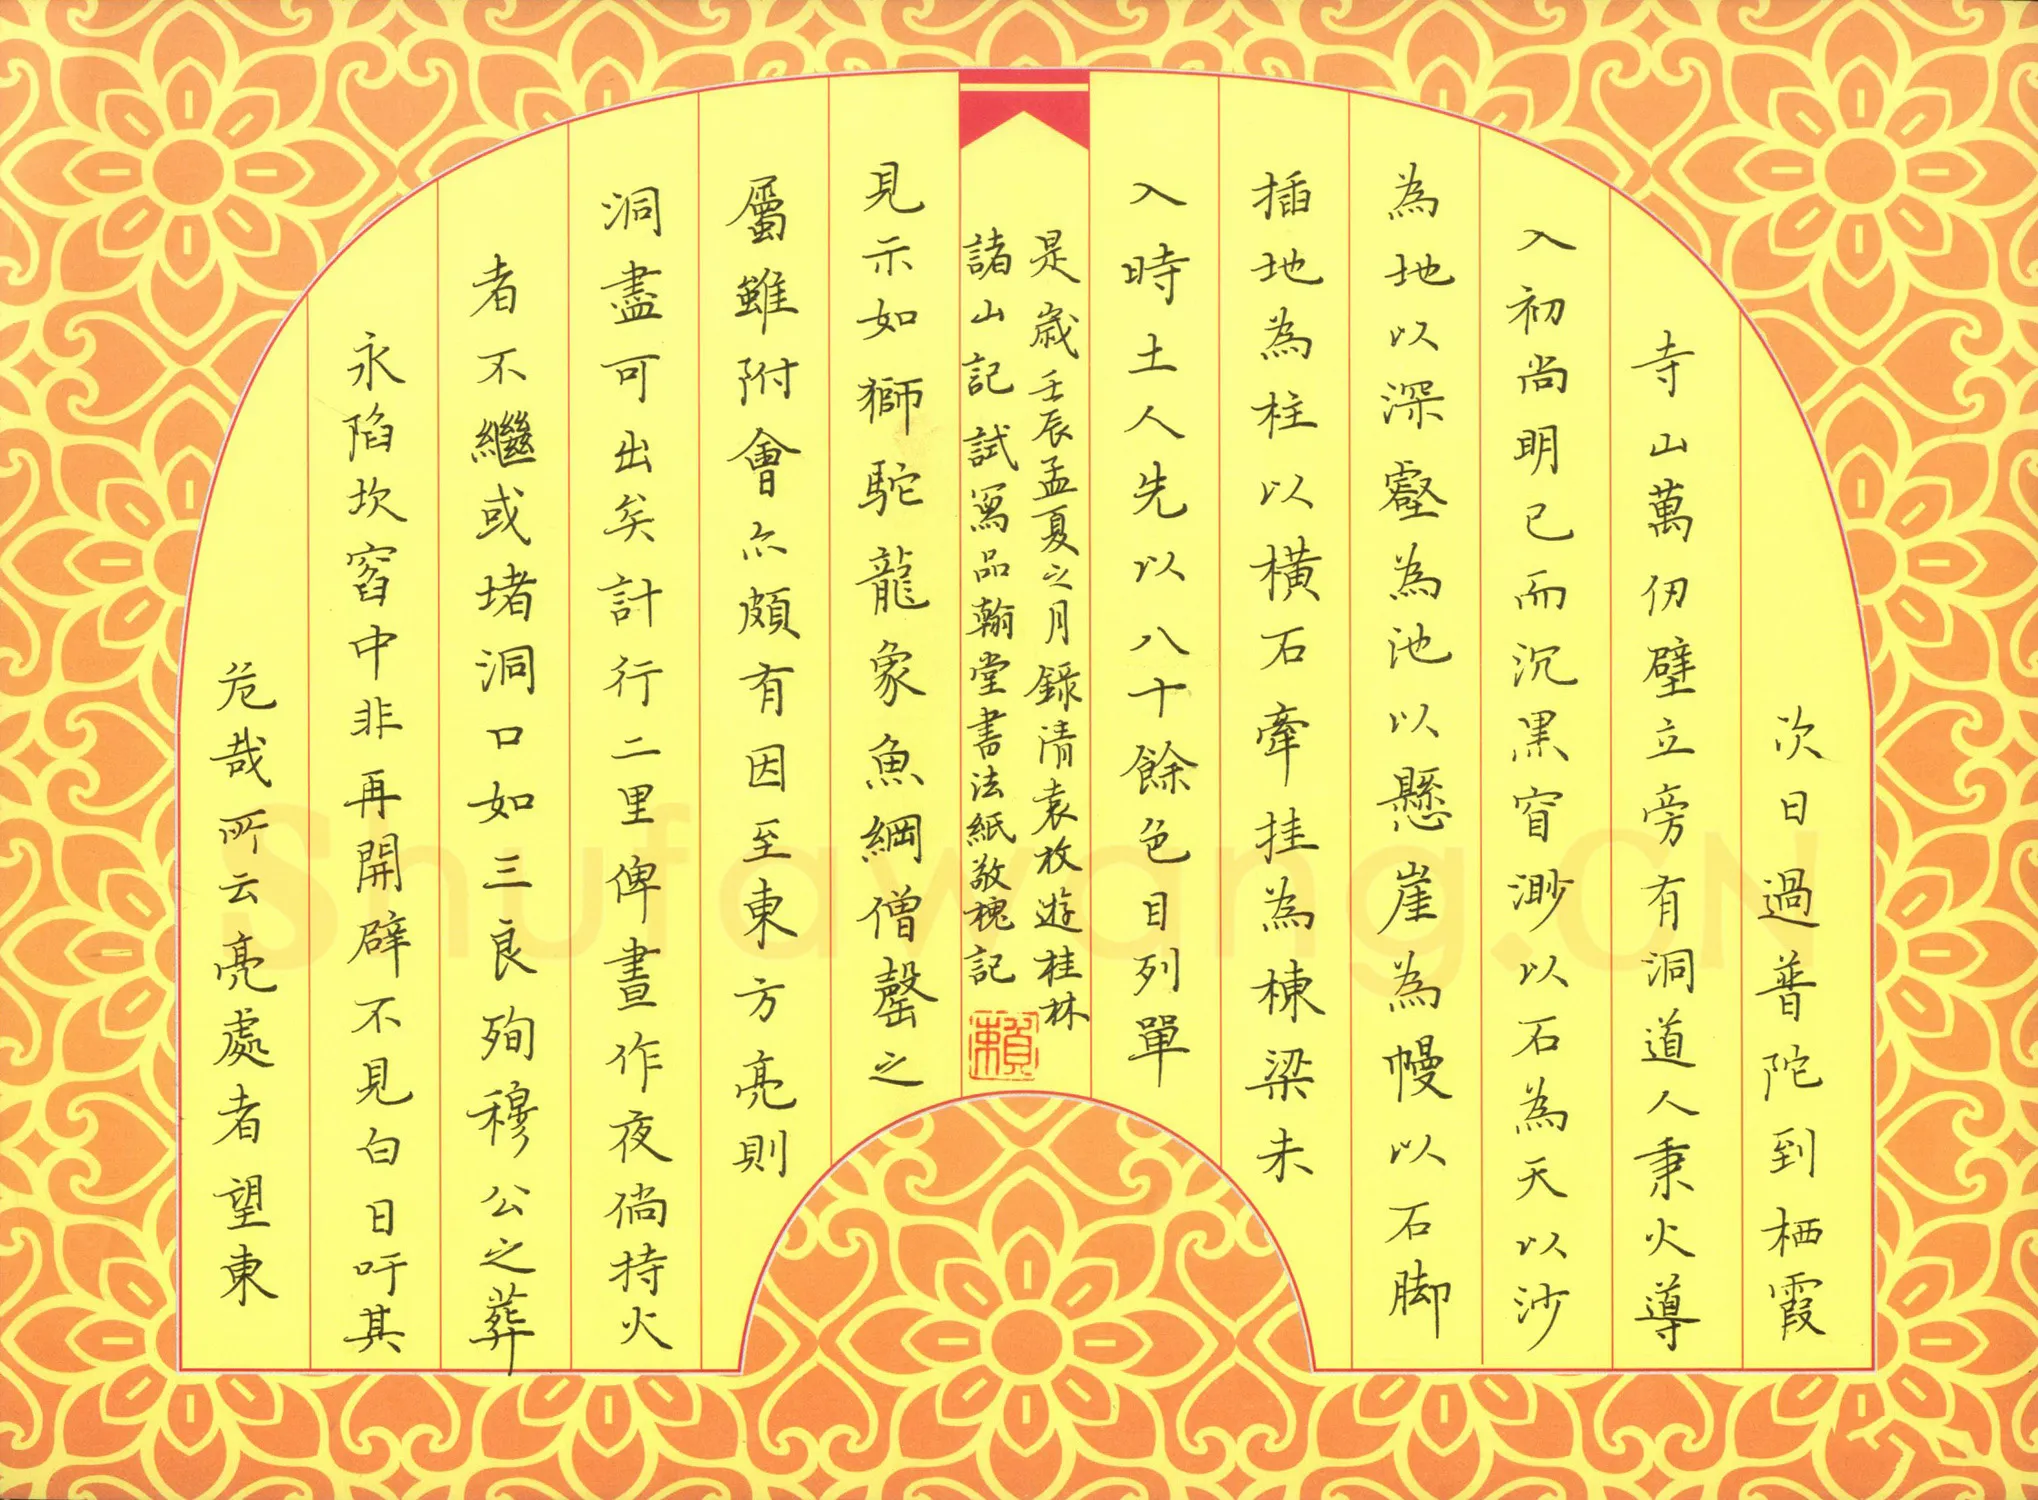 次日過普陀到栖霞
寺山萬仞壁立旁有洞道人秉火導
入初尚明已而沉黑窅渺以石為天以沙
為地以深壑為池以懸崖為幔以石脚
插地為柱以橫石牽挂為棟梁未
入時土人先以八十餘色目列單
是歲壬辰孟夏之月錄清袁枚遊桂林
諸山記試寫品翰堂書法紙敬槐記
賴
見示如獅駝龍象魚網僧磬之
屬雖附會亦頗有因至東方亮則
洞盡可出矣計行二里俾晝作夜倘持火
者不繼或堵洞口如三良殉穆公之葬
永陷坎窞中非再開辟不見白日吁其
危哉所云亮處者望東
Shufawang.CN